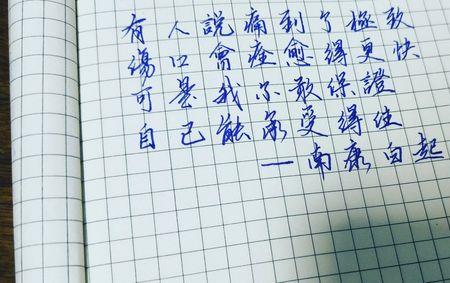 有人說痛到了極致
傷口會痊愈得更快
可是我不敢保證
自己能承受得住
—南康白起